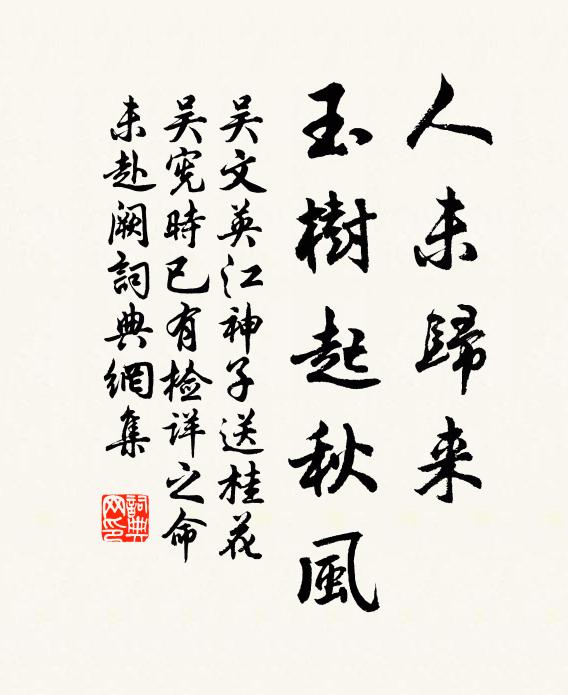 人未歸来
玉樹起秋風
吴文英江神子送桂花
吴宪時已有检详之命
未赴阙詞典網集
詞典网印